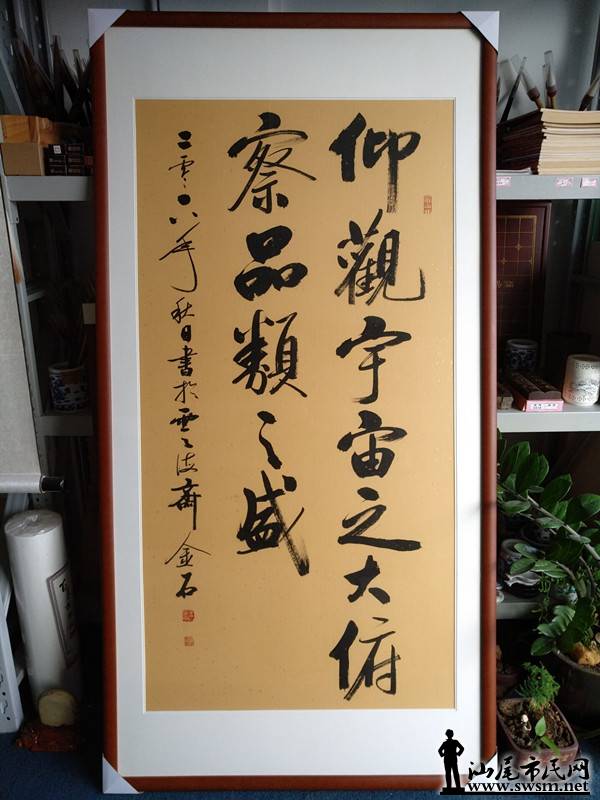 仰觀宇宙之大俯
察品類之盛
二零一八年秋日書於雲海齋金石
汕尾市民网
www.swsm.net